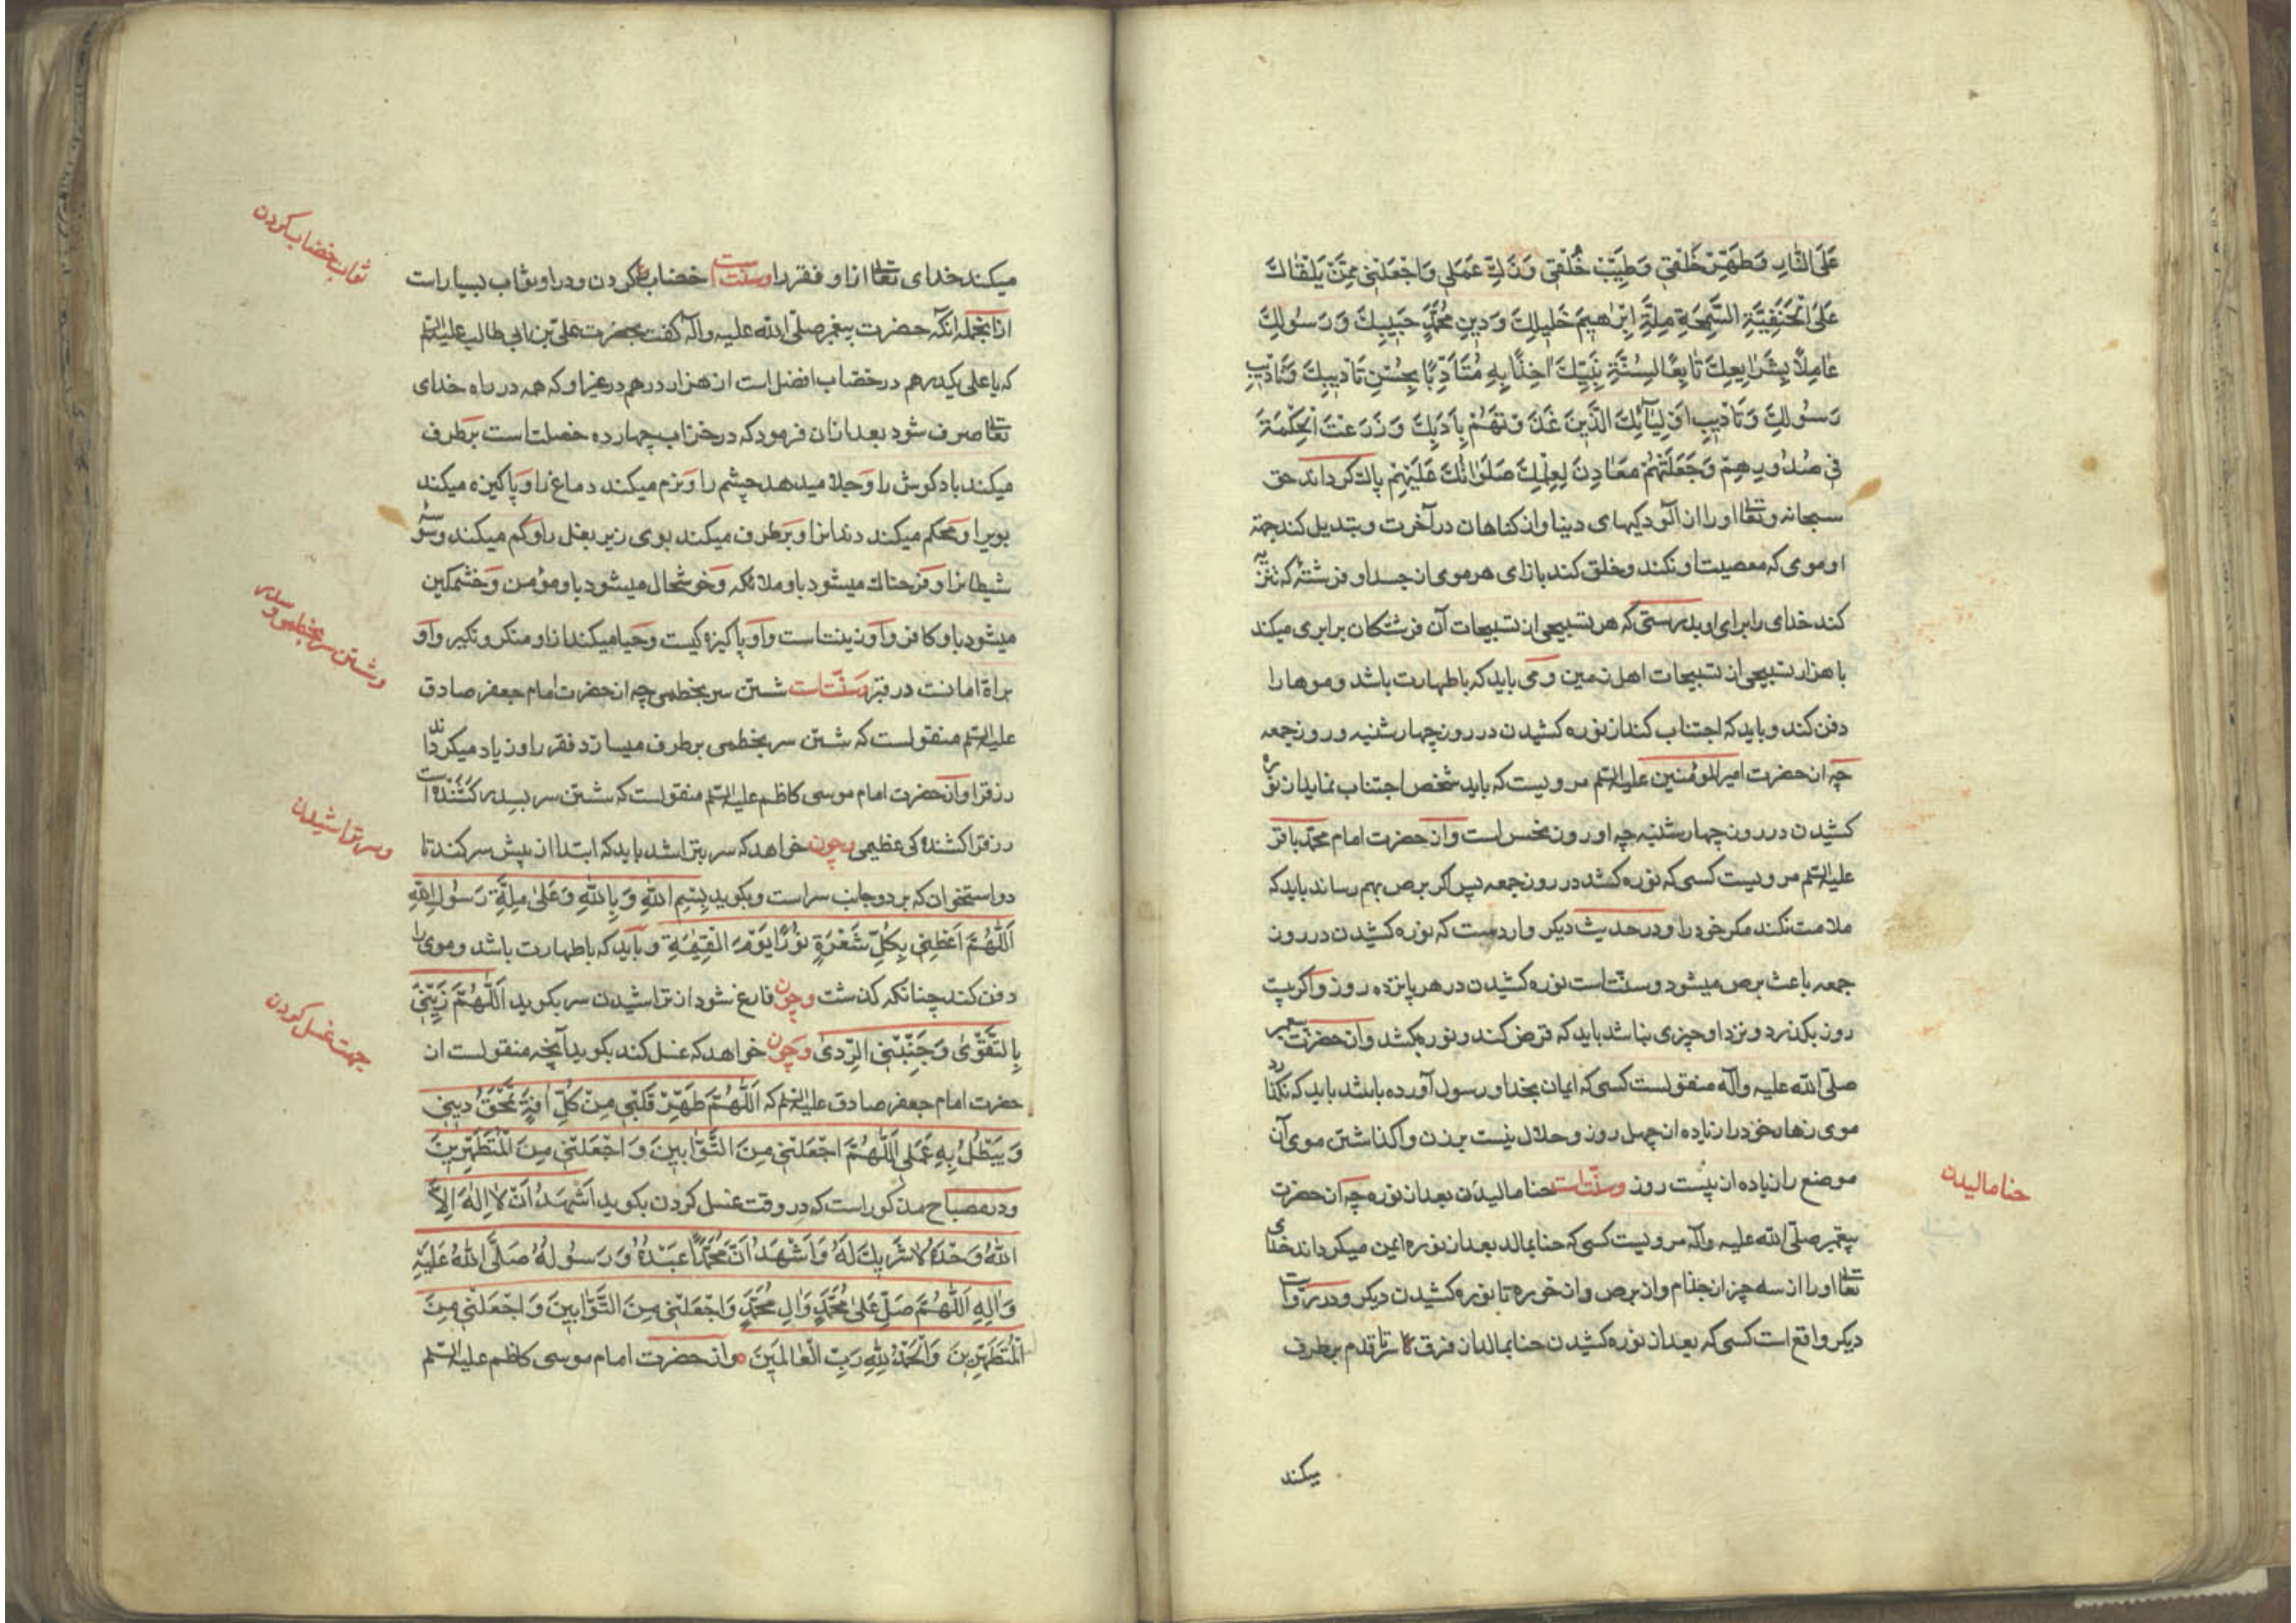 عَلَى النَّارِ وَطَهِّرْ خَلْقِي وَطَيِّبْ خُلُقِي وَزَكِّ عَمَلِي وَاجْعَلْنِي مِمَّنْ يَلْقَاكَ
عَلَى الْحَنَفِيَّةِ السَّمِحَةِ مِلَّةِ اِبْرٰهِيمَ خَلِيلِكَ وَدِينِ مُحَمَّدٍ حَبِيبِكَ وَرَسُولِكَ
عَامِلاً بِشَرَايِعِكَ تَابِعًا لِسُنَّةِ نَبِيِّكَ اٰخِذًا بِهِ مُتَأَدِّبًا بِحُسْنِ تَادِيبِكَ وَتَادِيبِ
رَسُولِكَ وَتَادِيبِ اَوْلِيَآئِكَ الَّذِينَ غَذَوْتَهُمْ بِاَدَبِكَ وَزَرَعْتَ الْحِكْمَةَ
فِي صُدُورِهِمْ وَجَعَلْتَهُمْ مَعَادِنَ لِعِلْمِكَ صَلَوَاتُكَ عَلَيْهِمْ پاك كرداند حق
سبحانه وتعالى او را از آلودكيهاى دنيا واز كناهان در آخرت و بتديل كند جهة
او موى كه معصيت او نكند وخلق كند بازاى هر موى از جسد او فرشتۀ كه تنزيه
كند خداى را براى او بدرستى كه هر تسبيحى از تسبيحات آن فرشتكان برابرى ميكند
با هزار تسبيحى از تسبيحات اهل زمين ومى بايد كه باطهارت باشد وموها را
دفن كند وبايد كه اجتناب كند از نوره كشيدن در روز چهارشنبه وروز جمعه
چه از حضرت امير المؤمنين عليه السلم مرويست كه بايد شخص اجتناب نمايد از نوره
كشيدن در روز چهارشنبه چه او روز نحس است واز حضرت امام محمد باقر
عليه السلم مرويست كسى كه نوره كشد در روز جمعه پس اكر برص بهم رساند بايد كه
ملامت نكند مكر خود را ودر حديث ديكر واردست كه نوره كشيدن در روز
جمعه باعث برص ميشود وسنّت است نوره كشيدن در هر پانزده روز واكر بيست
روز بكذرد ونزد او چيزى نباشد بايد كه قرض كند ونوره بكشد واز حضرت پيغمبر
صلّى الله عليه وآله منقولست كسى كه ايمان بخدا ورسول آورده باشد بايد كه نكذارد
موى زهار خود را زياده از چهل روز وحلال نيست بر زن واكذاشتن موى آن
موضع را زياده از بيست روز وسنّت است حنا ماليدن بعد از نوره چه از حضرت
پيغمبر صلّى الله عليه وآله مرويست كسى كه حنا بمالد بعد از نوره ايمن ميكرداند خداى
تعالى او را از سه چيز از جذام واز برص واز خوره تا نوره كشيدن ديكر ودر روايت
ديكر واقع است كسى كه بعد از نوره كشيدن حنا بمالد از فرق سر تا قدم برطرف
ميكند
حنا ماليدن
ميكند خداى تعالى از او فقر را وسنّت است خضاب كردن ودر او ثواب بسيار است
از انجمله آنكه حضرت پيغمبر صلّى الله عليه وآله كفت بحضرت على بن ابى طالب عليه السلم
كه يا على يكدرهم در خضاب افضل است از هزار درهم در غير او كه همه در راه خداى
تعالى صرف شود بعد ازان فرمود كه در خزاب چهارده خصلت است برطرف
ميكند باد كوش را وجلا ميدهد چشم را ونرم ميكند دماغ را وپاكيزه ميكند
بويرا ومحكم ميكند دندانرا وبرطرف ميكند بوى زير بغل را وكم ميكند وسوسۀ
شيطانرا وفرحناك ميشود باو ملائكه وخوشحال ميشود باو مؤمن وخشمكين
ميشود باو كافر واو زينت است واو پاكيزه كيست وحيا ميكند از او منكر ونكير واو
براة امانت در قبر وسنّت است شستن سر بخطمى چه از حضرت امام جعفر صادق
عليه السلم منقولست كه شستن سر بخطمى برطرف ميسازد فقر را وزياد ميكرداند
رزق را واز حضرت امام موسى كاظم عليه السلم منقولست كه شستن سر بسدر كشنده است
رزق را كشندۀ كى عظيمى وچون خواهد كه سر بتراشد بايد كه ابتدا از پيش سر كند تا
دو استخوان كه بر دو جانب سر است وبكويد بِسْمِ اللهِ وَبِاللهِ وَعَلٰى مِلَّةِ رَسُولِ اللهِ
اَللّٰهُمَّ اَعْطِنِي بِكُلِّ شَعْرَةٍ نُورًا يَوْمَ الْقِيٰمَةِ وبايد كه باطهارت باشد وموى را
دفن كند چنانكه كذشت وچون فارغ شود از تراشيدن سر بكويد اَللّٰهُمَّ زَيِّنِّي
بِالتَّقْوٰى وَجَنِّبْنِي الرَّدٰى وچون خواهد كه غسل كند بكويد آنچه منقولست از
حضرت امام جعفر صادق عليه السلم كه اَللّٰهُمَّ طَهِّرْ قَلْبِي مِنْ كُلِّ اٰفَةٍ تَمْحَقُ دِينِي
وَيَبْطُلُ بِهِ عَمَلِي اَللّٰهُمَّ اجْعَلْنِي مِنَ التَّوَّابِينَ وَاجْعَلْنِي مِنَ الْمُتَطَهِّرِينَ
ودر مصباح مذكور است كه در وقت غسل كردن بكويد اَشْهَدُ اَنْ لاٰ اِلٰهَ اِلاَّ
اللهُ وَحْدَهُ لاٰ شَرِيكَ لَهُ وَاَشْهَدُ اَنَّ مُحَمَّدًا عَبْدُهُ وَرَسُولُهُ صَلَّى اللهُ عَلَيْهِ
وَاٰلِهِ اَللّٰهُمَّ صَلِّ عَلٰى مُحَمَّدٍ وَاٰلِ مُحَمَّدٍ وَاجْعَلْنِي مِنَ التَّوَّابِينَ وَاجْعَلْنِي مِنَ
الْمُتَطَهِّرِينَ وَالْحَمْدُ لِلّٰهِ رَبِّ الْعَالَمِينَ واز حضرت امام موسى كاظم عليه السلم
ثواب خضاب كردن
وشستن سر بخطمى وسدر
وسر تراشيدن
جهت غسل كردن